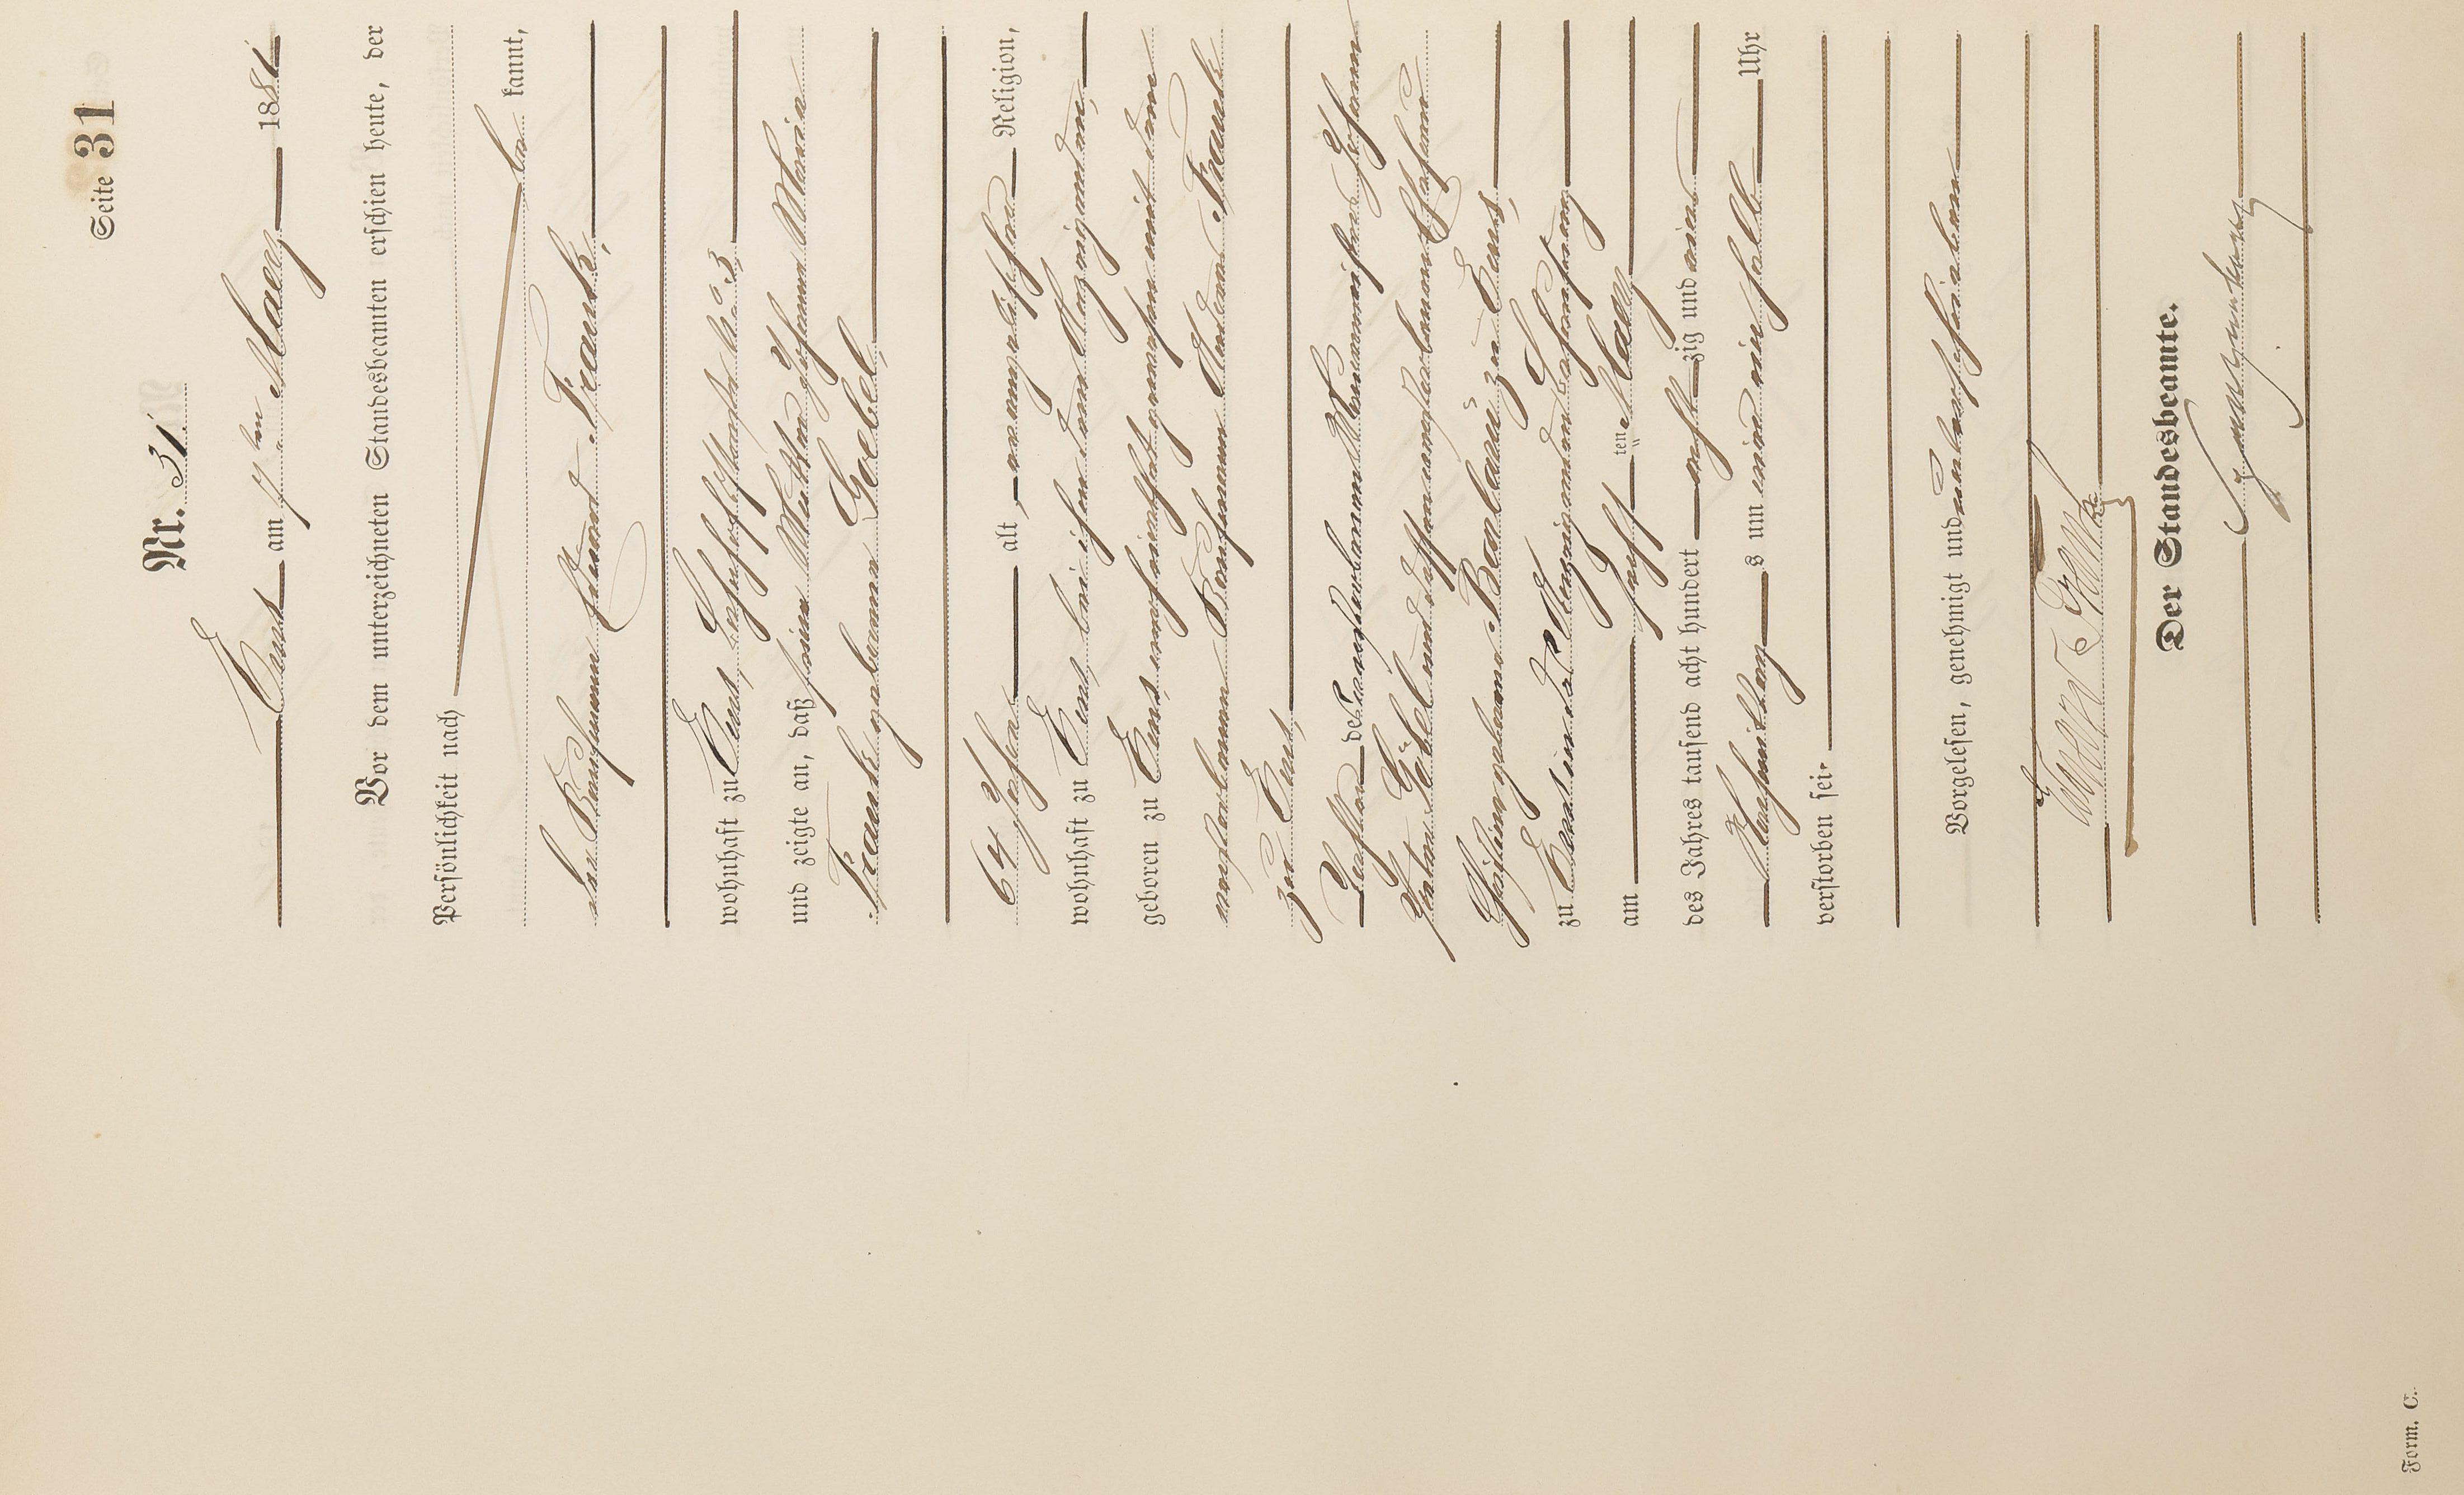 Seite 31
Nr. 31.
Ems am 7ten Maerz 1881
Vor dem unterzeichneten Standesbeamten erschien heute, der
Persönlichkeit nach
be kannt,
der Bauführer Eduard Frank,
wohnhaft zu Ems,
und zeigte an, daß seine Mutter Johanna Maria
Frank geborenen Goebel,
64 Jahre alt, evangelischer Religion,
wohnhaft zu Ems, bei ihrem dem Anzeigenden,
geboren zu Ems, verheirathet gewesen mit dem
verstorbenen Andreas Frank
zu Ems,
Tochter des verstorbenen Johann
Peter Göbel und dessen verstorbenen Ehefrau
Christine geborene Balzar zu Ems,
zu Ems in des Anzeigenden Behausung
am ten Maerz
des Jahres tausend acht hundert acht zig und ein
Nachmittags um ein halb Uhr
verstorben sei.
Vorgelesen, genehmigt und unterschrieben
Eduard Frank
Der Standesbeamte.
Form. C.